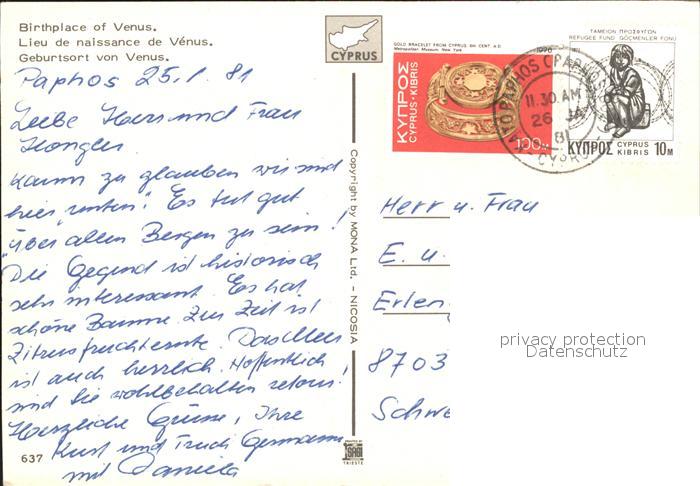 Birthplace of Venus.
Lieu de naissance de Vénus.
Geburtsort von Venus.
Paphos 25.1.81
Liebe Herr und Frau
Kaum zu glauben wir sind
hier "unten". Es tut gut
"über allen Bergen zu sein!
Die Gegend ist historisch
sehr interessant. Es hat
schöne Bäume. Zur Zeit ist
Zitrusfruchternte. Das Meer
ist auch herrlich. Hoffentlich
sind Sie wohlbehalten retour!
Herzliche Grüsse, Ihre
Kurt und Trudi Germann
mit Daniela
637
CYPRUS
Copyright by MONA Ltd. - NICOSIA
PRINTED BY
SAGI
TRIESTE
GOLD BRACELET FROM CYPRUS, 6th CENT. A.D.
Metropolitan Museum New York
1976
ΚΥΠΡΟΣ
CYPRUS·KIBRIS
100M
ΤΑΜΕΙΟΝ ΠΡΟΣΦΥΓΩΝ
REFUGEE FUND GÖÇMENLER FONU
ΚΥΠΡΟΣ CYPRUS KIBRIS 10M
PAPHOS
11.30 AM
26 JA
81
CYPRUS
Herr u. Frau
E. u.
Erlen
8703
Schwe
privacy protection
Datenschutz